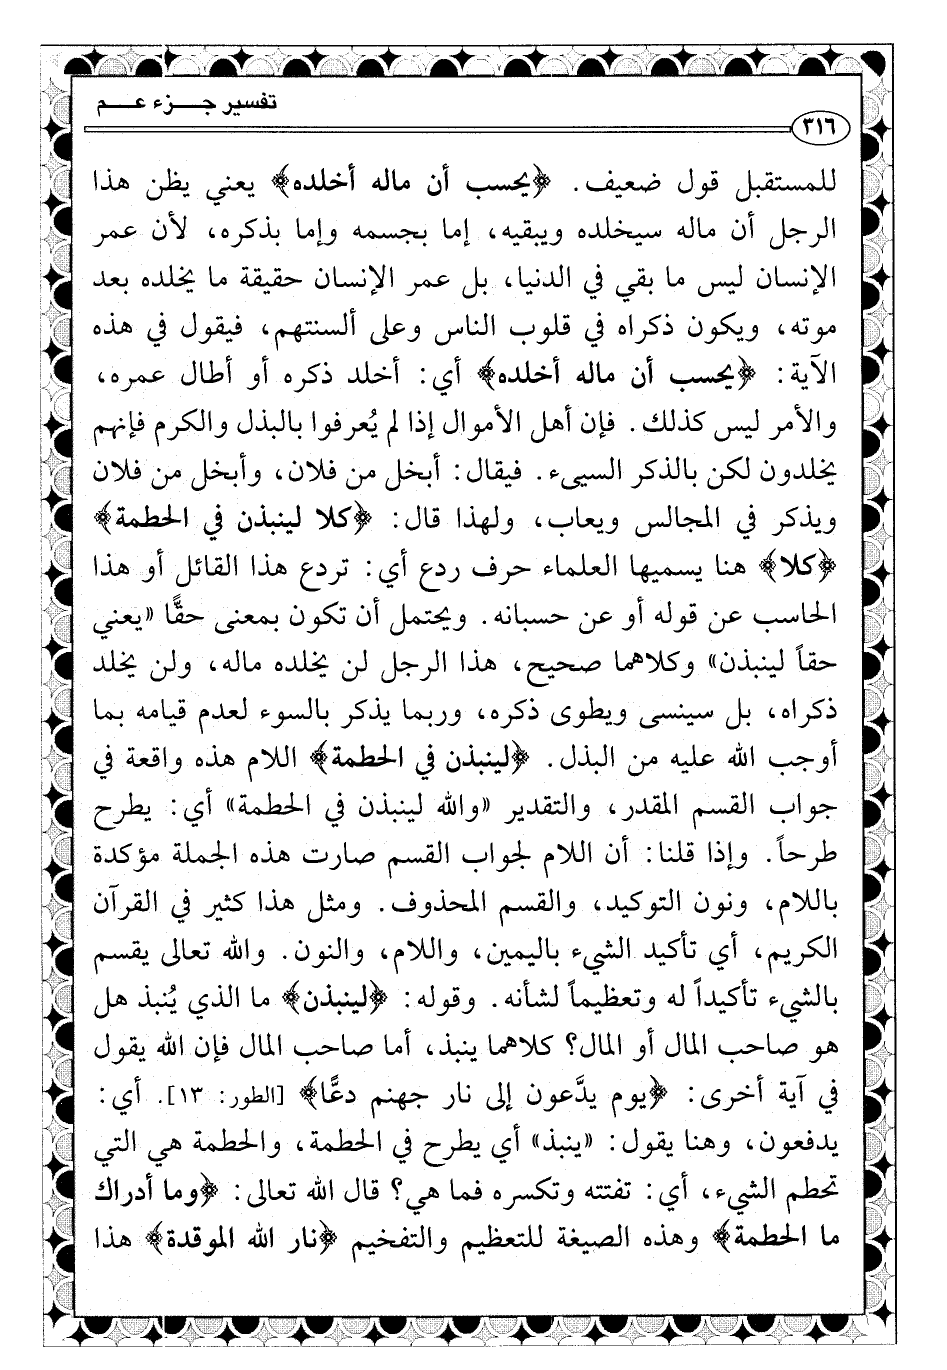 تفسير جـــزء عـــم
٣١٦
للمستقبل قول ضعيف. ﴿يحسب أن ماله أخلده﴾ يعني يظن هذا
الرجل أن ماله سيخلده ويبقيه، إما بجسمه وإما بذكره، لأن عمر
الإنسان ليس ما بقي في الدنيا، بل عمر الإنسان حقيقة ما يخلده بعد
موته، ويكون ذكراه في قلوب الناس وعلى ألسنتهم، فيقول في هذه
الآية: ﴿يحسب أن ماله أخلده﴾ أي: أخلد ذكره أو أطال عمره،
والأمر ليس كذلك. فإن أهل الأموال إذا لم يُعرفوا بالبذل والكرم فإنهم
يخلدون لكن بالذكر السيىء. فيقال: أبخل من فلان، وأبخل من فلان
ويذكر في المجالس ويعاب، ولهذا قال: ﴿كلا لينبذن في الحطمة﴾
﴿كلا﴾ هنا يسميها العلماء حرف ردع أي: تردع هذا القائل أو هذا
الحاسب عن قوله أو عن حسبانه. ويحتمل أن تكون بمعنى حقًّا «يعني
حقاً لينبذن» وكلاهما صحيح، هذا الرجل لن يخلده ماله، ولن يخلد
ذكراه، بل سينسى ويطوى ذكره، وربما يذكر بالسوء لعدم قيامه بما
أوجب الله عليه من البذل. ﴿لينبذن في الحطمة﴾ اللام هذه واقعة في
جواب القسم المقدر، والتقدير «والله لينبذن في الحطمة» أي: يطرح
طرحاً. وإذا قلنا: أن اللام لجواب القسم صارت هذه الجملة مؤكدة
باللام، ونون التوكيد، والقسم المحذوف. ومثل هذا كثير في القرآن
الكريم، أي تأكيد الشيء باليمين، واللام، والنون. والله تعالى يقسم
بالشيء تأكيداً له وتعظيماً لشأنه. وقوله: ﴿لينبذن﴾ ما الذي يُنبذ هل
هو صاحب المال أو المال؟ كلاهما ينبذ، أما صاحب المال فإن الله يقول
في آية أخرى: ﴿يوم يدَّعون إلى نار جهنم دعًّا﴾ [الطور: ١٣]. أي:
يدفعون، وهنا يقول: «ينبذ» أي يطرح في الحطمة، والحطمة هي التي
تحطم الشيء، أي: تفتته وتكسره فما هي؟ قال الله تعالى: ﴿وما أدراك
ما الحطمة﴾ وهذه الصيغة للتعظيم والتفخيم ﴿نار الله الموقدة﴾ هذا